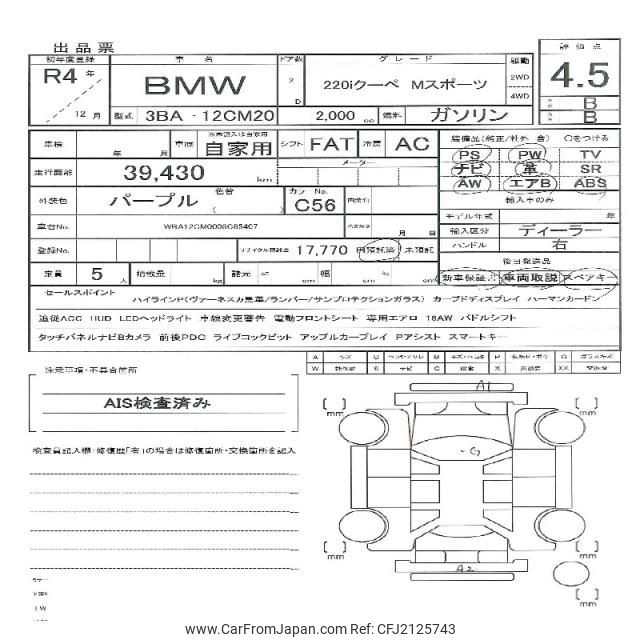 出品票
初年度登録 車名 ドア数 グレード 駆動 評価点
R4年 12月 BMW 2 D 220iクーペ Mスポーツ 2WD 4WD 4.5
型式 3BA - 12CM20 2,000 cc 燃料 ガソリン B B
車検 年 月 車歴 自家用 シフト FAT 冷房 AC
装備品(純正/社外 含) ○をつける
PS PW TV
ナビ 革 SR
AW エアB ABS
走行距離 39,430 km メーター
輸入車のみ
外装色 パープル 色替 ( ) カラーNo. C56
モデル年式 年
車台No. WBA12CM0008C85407 月 日
輸入区分 ディーラー
ハンドル 右
登録No. リサイクル預託金 17,770 円 預託済 未預託
後日発送品
定員 5人 積載量 kg 諸元 cm 幅 cm cm
新車保証書 車両取説 スペアキー
セールスポイント
ハイラインP(ヴァーネスカ黒革/ランバー/サンプロテクションガラス) カーブドディスプレイ ハーマンカードン
追従ACC HUD LEDヘッドライト 車線変更警告 電動フロントシート 専用エアロ 18AW パドルシフト
タッチパネルナビBカメラ 前後PDC ライブコックピット アップルカープレイ Pアシスト スマートキー
注意事項・不具合箇所
AIS検査済み
検査員記入欄:修復歴「有」の場合は修復箇所・交換箇所を記入
A1
[ ] mm [ ] mm
G
[ ] mm [ ] mm
A2
[ ] mm
www.CarFromJapan.com Ref: CFJ2125743